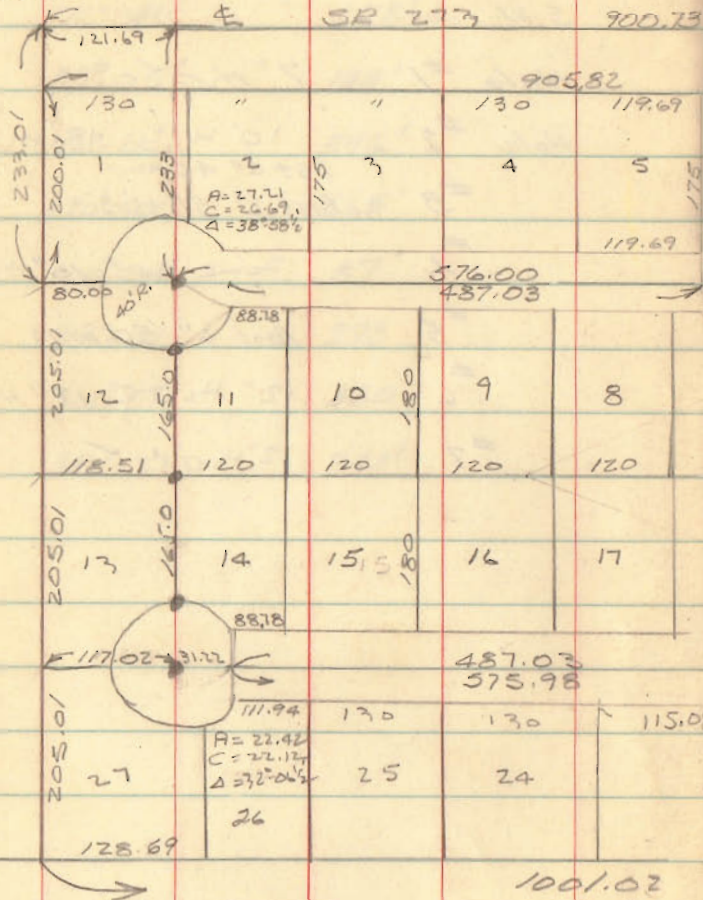 ℄ SR 273 900.73
121.69
905,82
130 " " 130 119.69
233.01
200.01
1 233 2 175 3 4 5 175
A = 27.21
C = 26.69
Δ = 38°-58½
119.69
80.00 40'R. 576.00
487.03
88.78
205.01
12 165.0 11 10 180 9 8
118.51 120 120 120 120
205.01
13 165.0 14 15 15 180 16 17
88,78
117.02 31.22 487.03
575.98
111.94 130 130 115.0
205.01
27 A = 22.42 25 24
C = 22.12
Δ = 32°-06½
26
128.69
1001.02